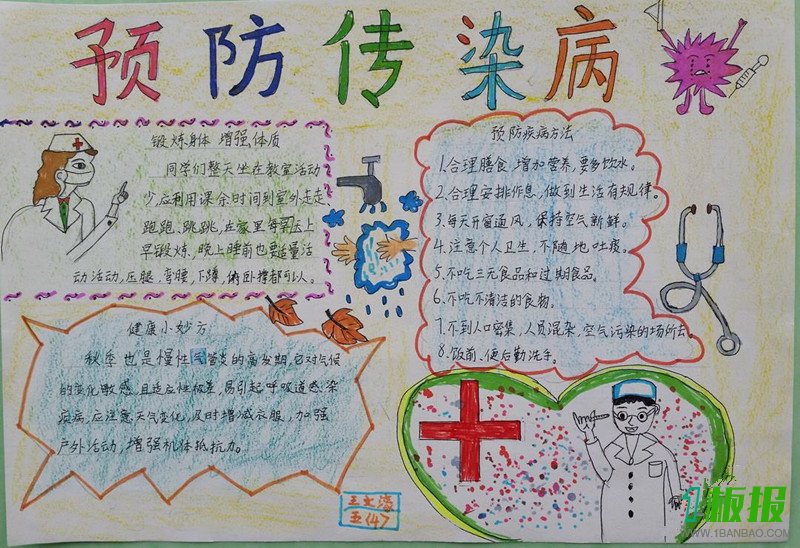 预防传染病
锻炼身体 增强体质
同学们整天坐在教室活动
少,应利用课余时间到室外走走,
跑跑、跳跳,在家里每晨去上
早锻炼,晚上睡前也要适量活
动活动,压腿,弯腰,下蹲,俯卧撑都可以。
预防疾病方法
1.合理膳食,增加营养,要多饮水。
2.合理安排作息,做到生活有规律。
3.每天开窗通风,保持空气新鲜。
4.注意个人卫生,不随地吐痰。
5.不吃三无食品和过期食品。
6.不吃不清洁的食物。
7.不到人口密集,人员混杂,空气污染的场所去。
8.饭前、便后勤洗手。
健康小妙方:
秋季也是慢性气管炎的高发期,它对气候
的变化敏感,且适应性极差,易引起呼吸道感染
疾病,应注意天气变化,及时增减衣服,加强
户外活动,增强机体抵抗力。
五(4)
1板报
WWW.1BANBAO.COM